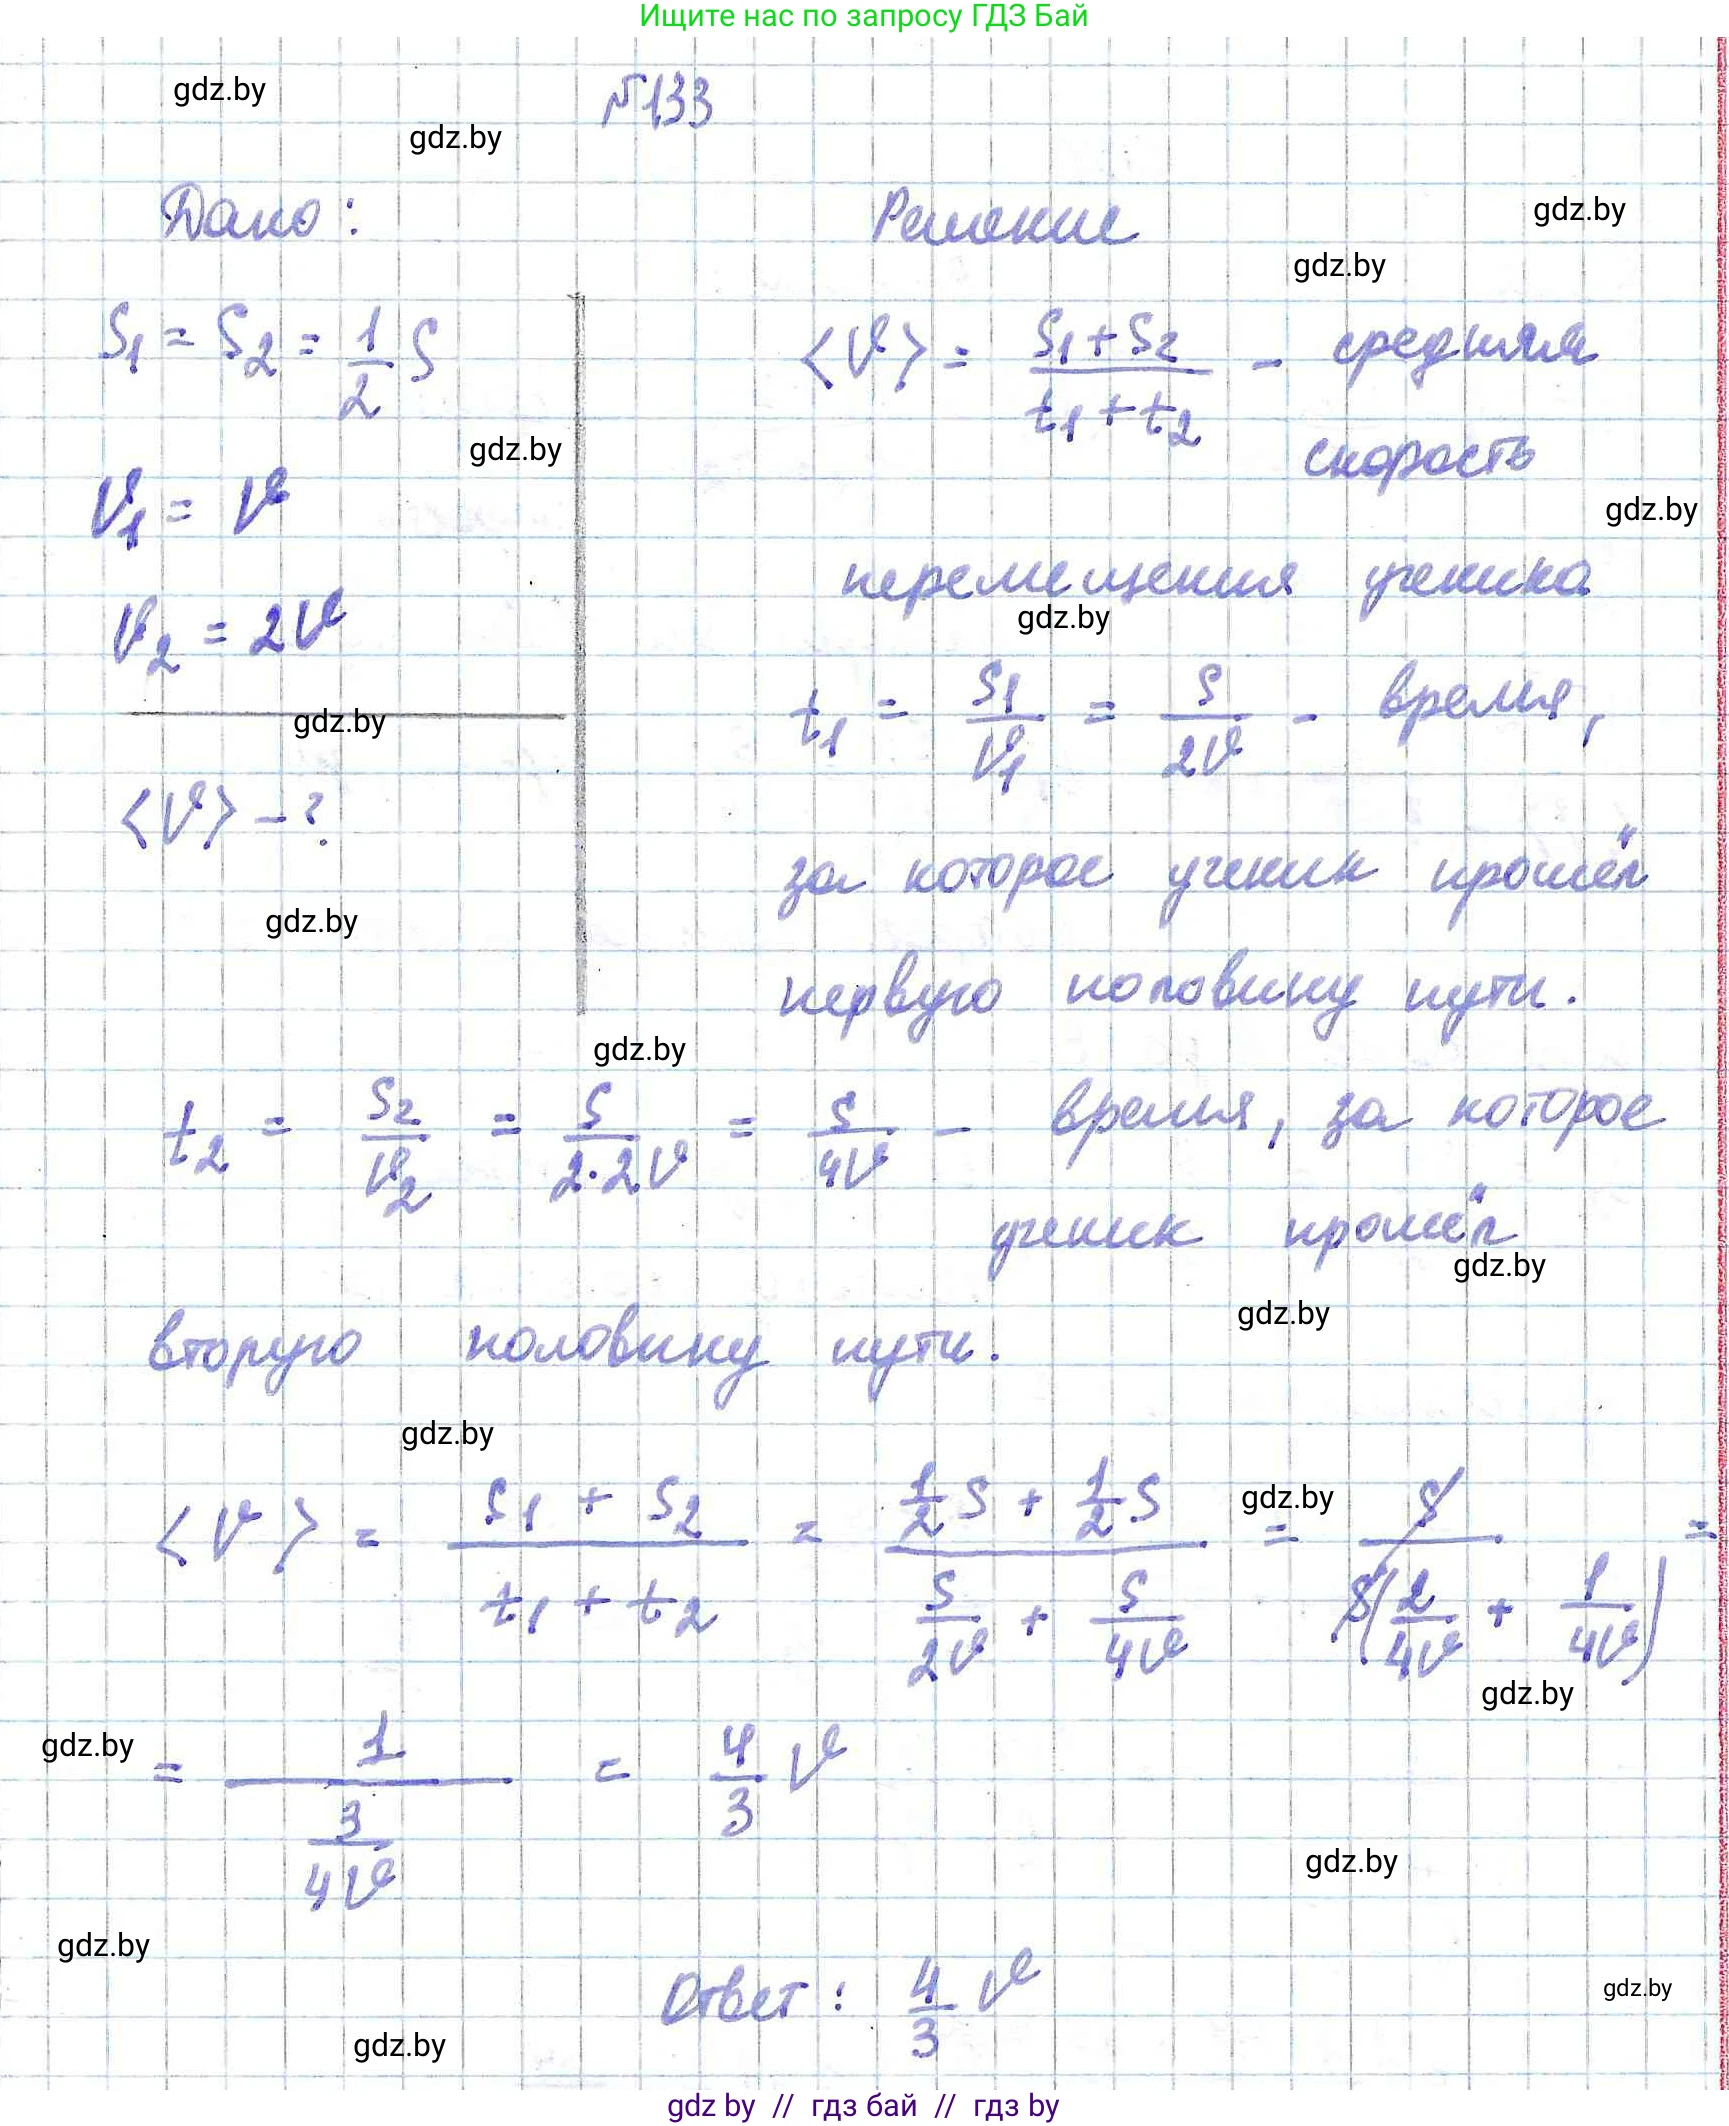 Ищите нас по запросу ГДЗ Бай
gdz.by
№133
gdz.by
Дано:
Решение
gdz.by
gdz.by
S₁ = S₂ = 1/2 S
⟨v⟩ = (S₁ + S₂)/(t₁ + t₂) - средняя
скорость
gdz.by
v₁ = v
gdz.by
перемещения ученика
gdz.by
v₂ = 2v
t₁ = S₁/v₁ = S/2v - время,
gdz.by
⟨v⟩ - ?
за которое ученик прошёл
gdz.by
первую половину пути.
gdz.by
t₂ = S₂/v₂ = S/(2·2v) = S/4v - время, за которое
ученик прошёл
gdz.by
gdz.by
вторую половину пути.
gdz.by
gdz.by
⟨v⟩ = (S₁ + S₂)/(t₁ + t₂) = (1/2 S + 1/2 S)/(S/2v + S/4v) = S/(S(2/4v + 1/4v)) =
gdz.by
gdz.by
= 1/(3/4v) = 4/3 v
gdz.by
gdz.by
Ответ: 4/3 v
gdz.by
gdz.by
gdz by // гдз бай // гдз by